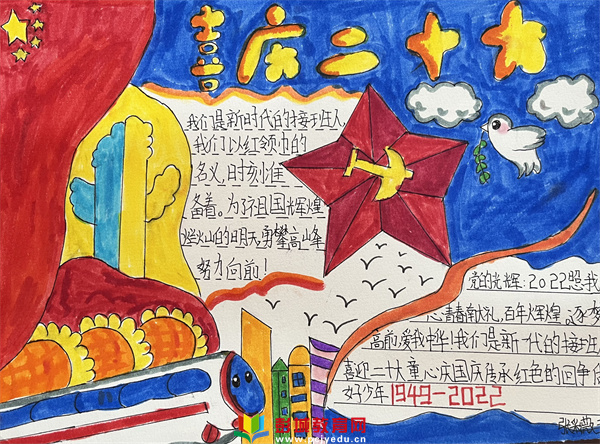 喜庆二十大
我们是新时代的接班人
我们以红领巾的
名义,时刻准
备着。为了祖国辉煌
灿烂的明天勇攀高峰
努力向前!
党的光辉:2022照我
心青春献礼,百年辉煌
高前,爱我中华!我们是新一代的接班
喜迎二十大童心庆国庆传承红色的回争
好少年1949-2022
www.peiyedu.cn